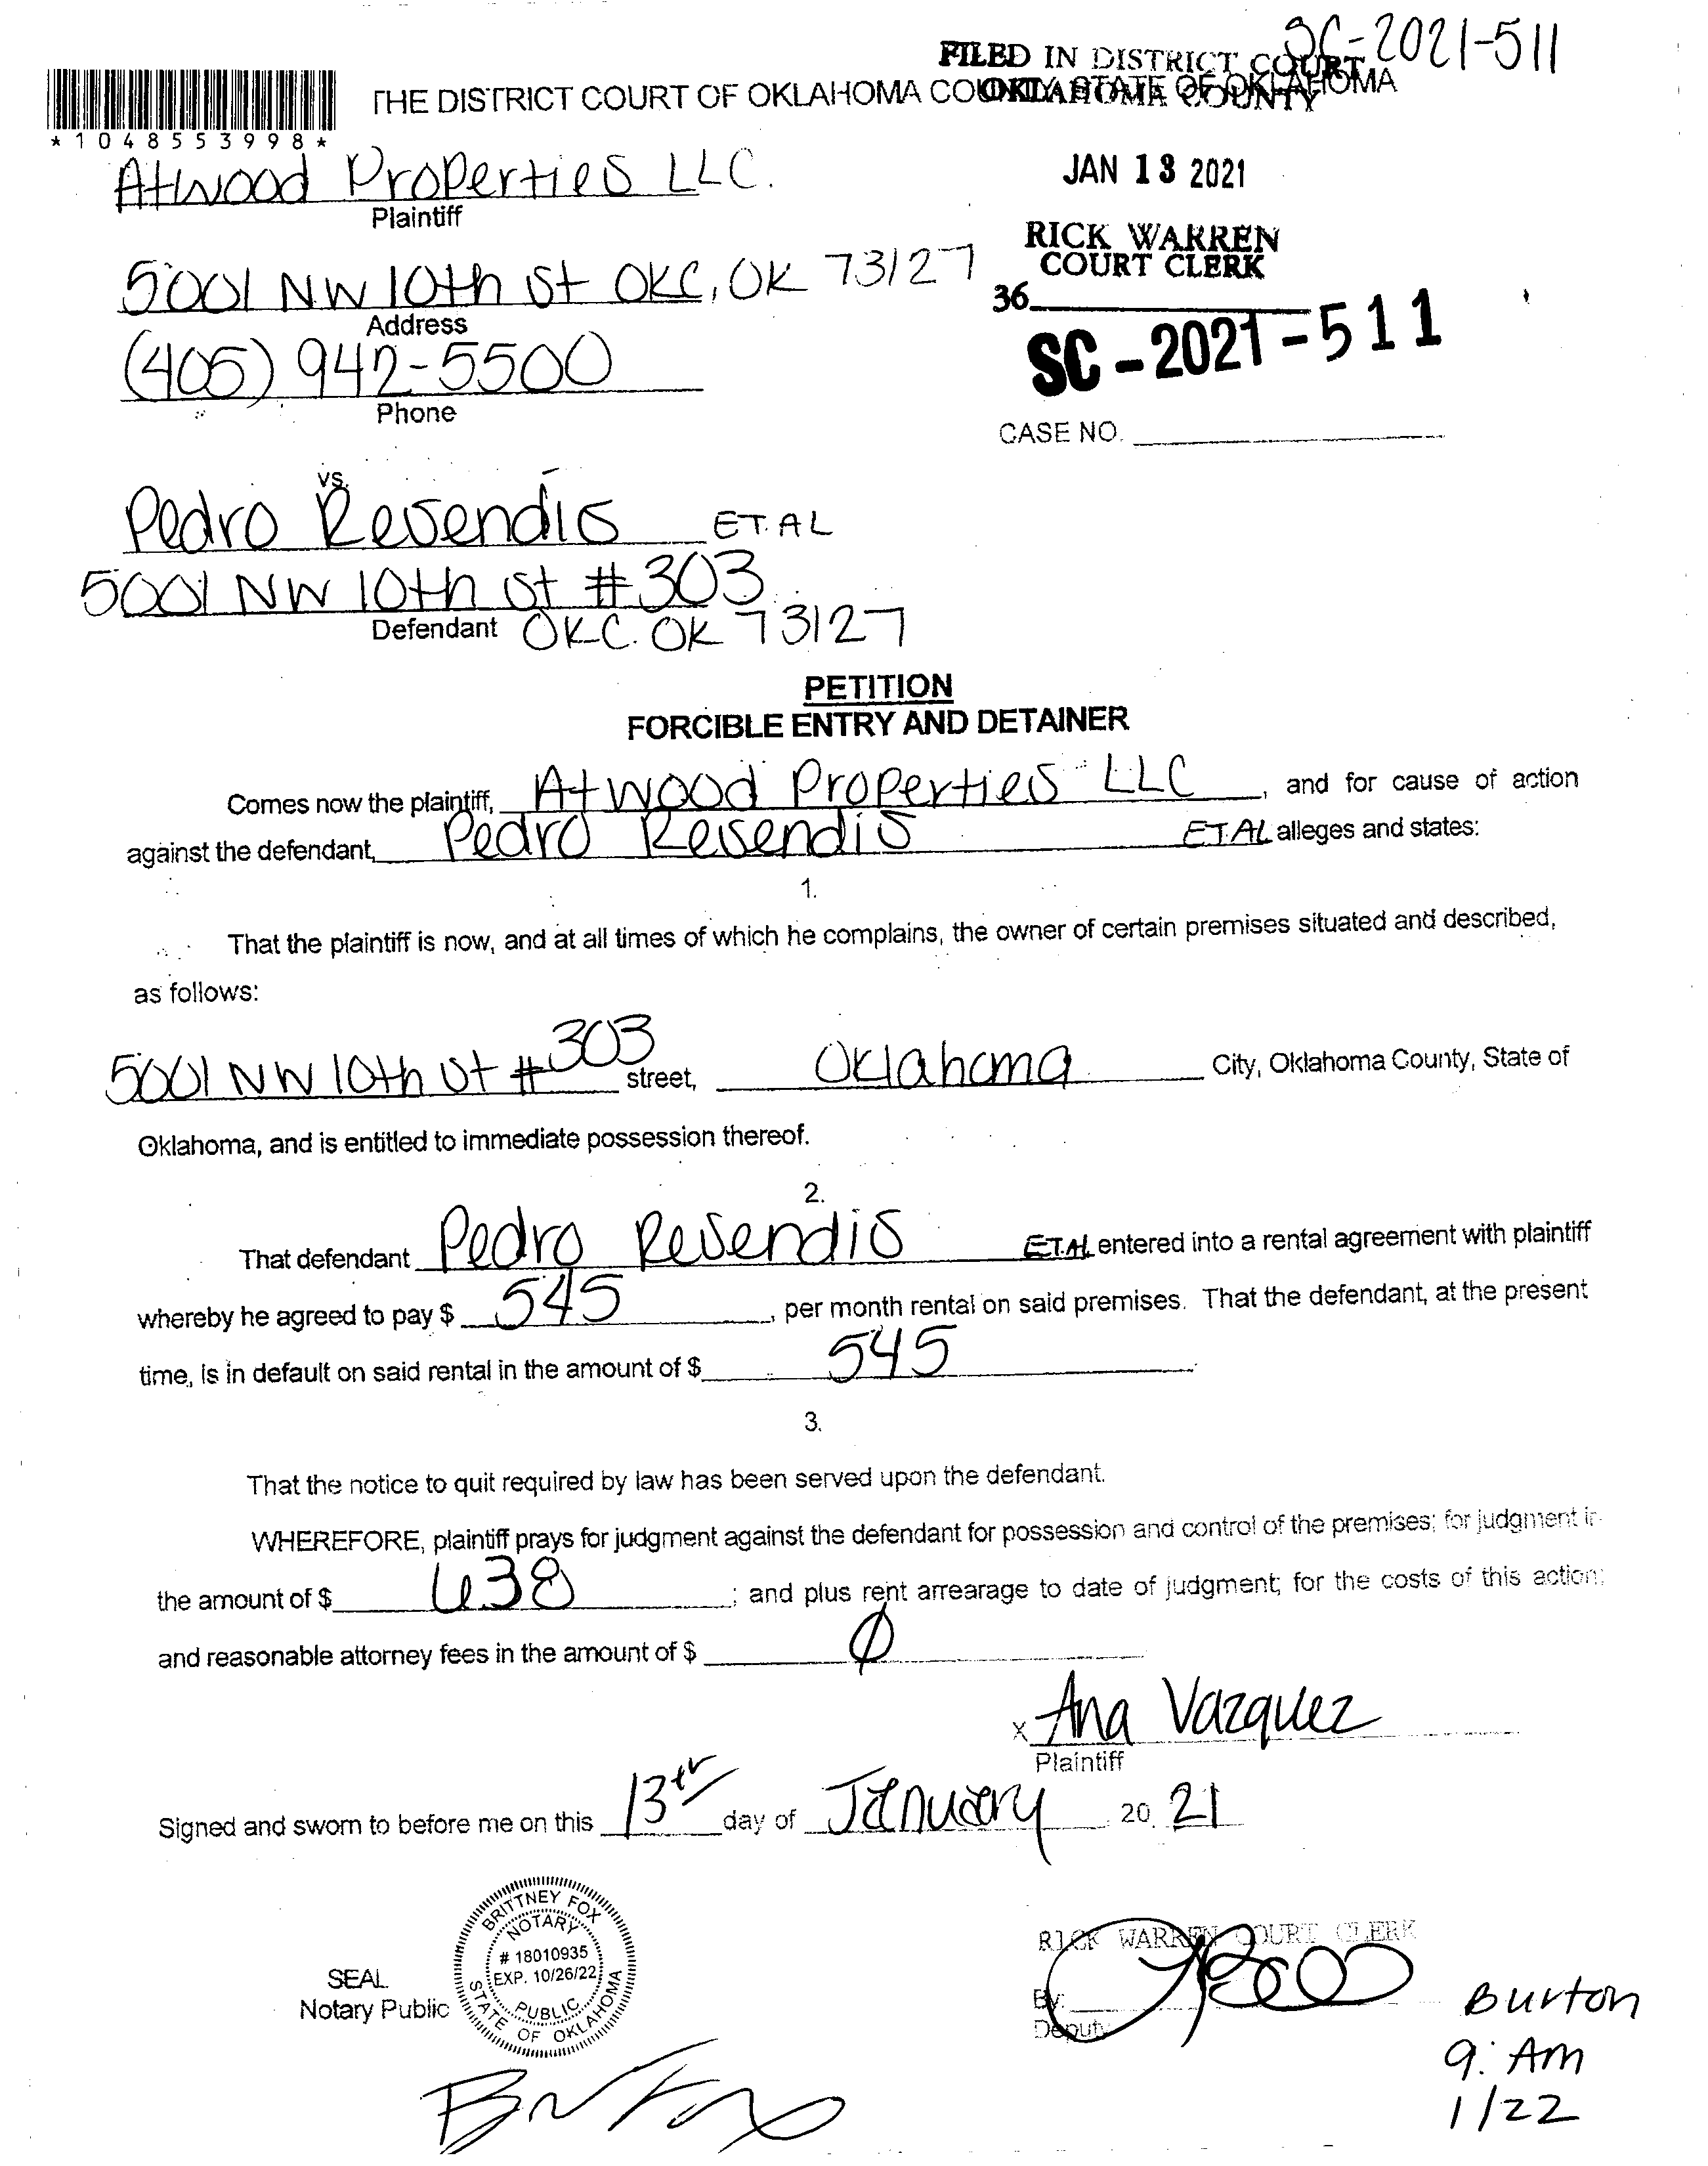 SC-2021-511
FILED IN DISTRICT COURT
OKLAHOMA COUNTY
THE DISTRICT COURT OF OKLAHOMA COUNTY, STATE OF OKLAHOMA
*1048553998*
Atwood Properties LLC.
Plaintiff
JAN 13 2021
RICK WARREN
COURT CLERK
5001 NW 10th St OKC, OK 73127
Address
36
(405) 942-5500
Phone
SC-2021-511
CASE NO.
vs.
Pedro Resendis ET.AL
5001 NW 10th St #303
Defendant OKC. OK 73127
PETITION
FORCIBLE ENTRY AND DETAINER
Comes now the plaintiff, Atwood Properties LLC, and for cause of action
against the defendant, Pedro Resendis ET.AL alleges and states:
1.
That the plaintiff is now, and at all times of which he complains, the owner of certain premises situated and described,
as follows:
5001 NW 10th St #303 street, Oklahoma City, Oklahoma County, State of
Oklahoma, and is entitled to immediate possession thereof.
2.
That defendant Pedro Resendis ET.AL entered into a rental agreement with plaintiff
whereby he agreed to pay $ 545, per month rental on said premises. That the defendant, at the present
time, is in default on said rental in the amount of $ 545.
3.
That the notice to quit required by law has been served upon the defendant.
WHEREFORE, plaintiff prays for judgment against the defendant for possession and control of the premises; for judgment in
the amount of $ 638; and plus rent arrearage to date of judgment; for the costs of this action;
and reasonable attorney fees in the amount of $ Ø
x Ana Vazquez
Plaintiff
Signed and sworn to before me on this 13th day of January 20 21
BRITTNEY FOX
NOTARY
# 18010935
EXP. 10/26/22
PUBLIC
STATE OF OKLAHOMA
SEAL
Notary Public
RICK WARREN COURT CLERK
By:
Deputy
Burton
9: AM
1/22